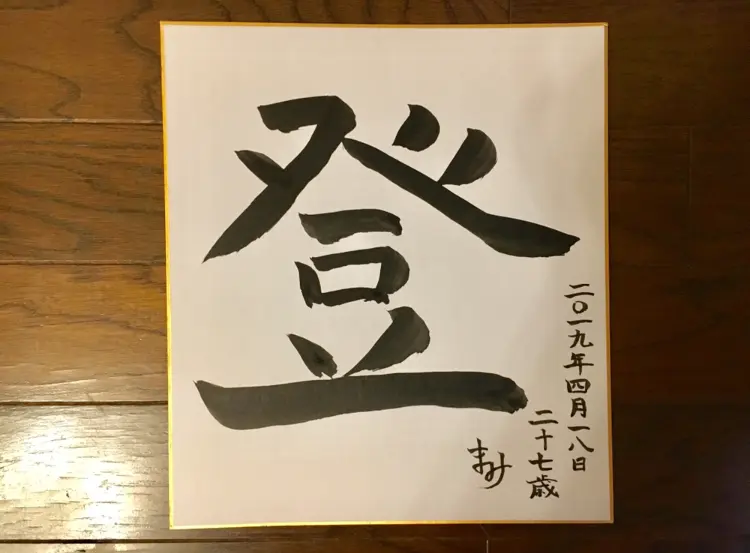 登
二〇一九年四月一八日
二十七歳
まみ